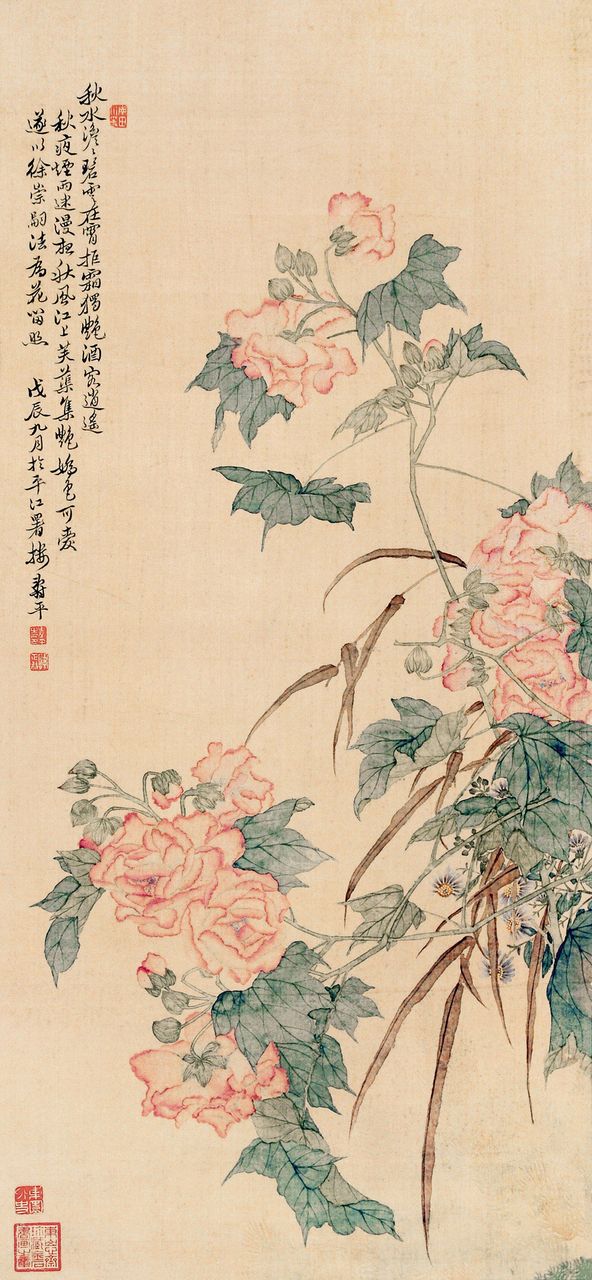 秋水澹澹碧雲在霄拒霜獨艷酒客逍遙
秋夜煙雨迷漫想秋風江上芙蕖集艷嬌色可愛
遂以徐崇嗣法為花留照 戊辰九月於平江署樓 壽平